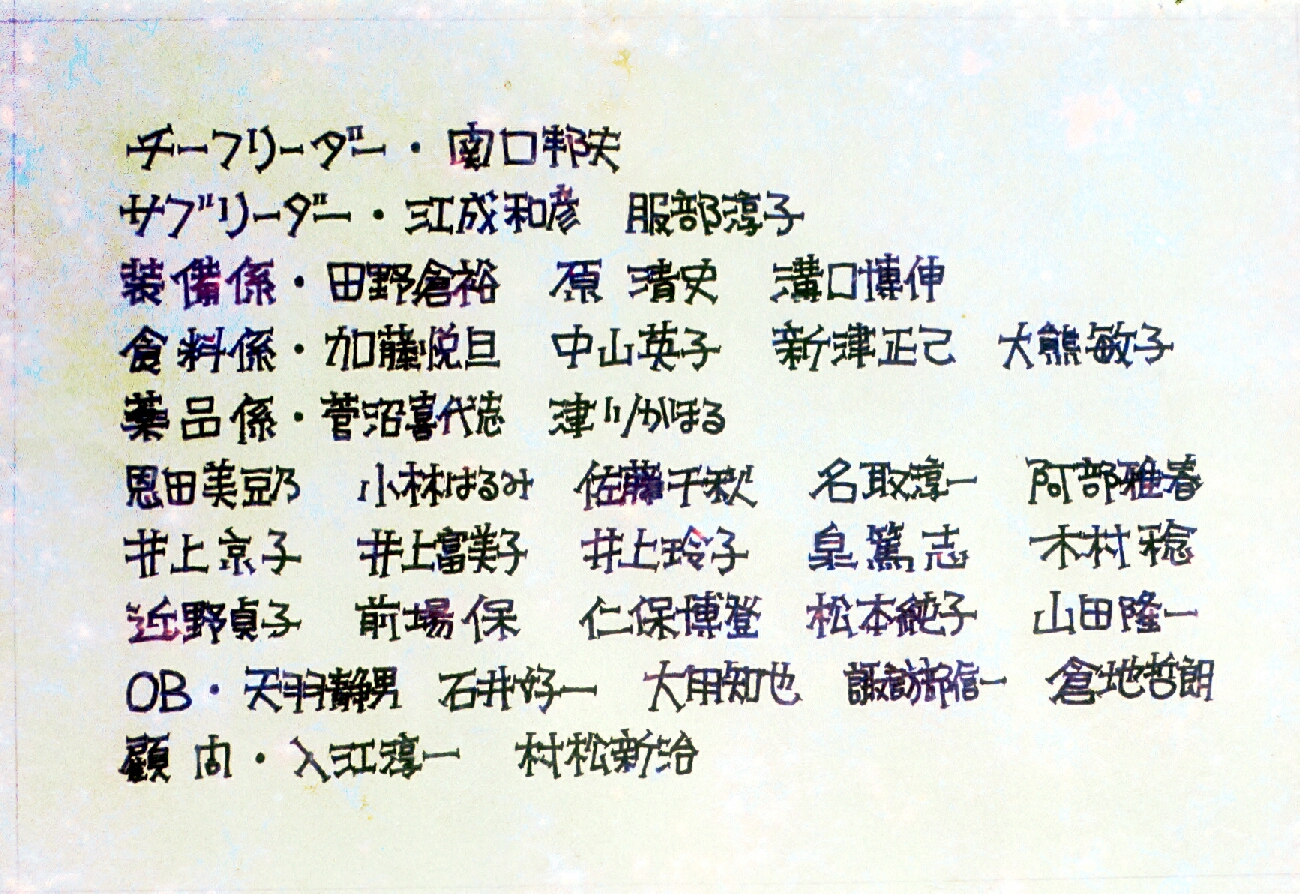 チーフリーダー・南口邦夫
サブリーダー・江成和彦 服部淳子
装備係・田野倉裕 原 清史 溝口博伸
食料係・加藤悦旦 中山英子 新津正己 大熊敏子
薬品係・菅沼喜代志 津川かほる
恩田美豆乃 小林はるみ 佐藤千秋 名取淳一 阿部雅春
井上京子 井上富美子 井上玲子 泉篤志 木村稔
近野貞子 前場保 仁保博登 松本純子 山田隆一
OB・天羽静男 石井好一 大用知也 諏訪部信一 倉地哲朗
顧問・入江淳一 村松新治